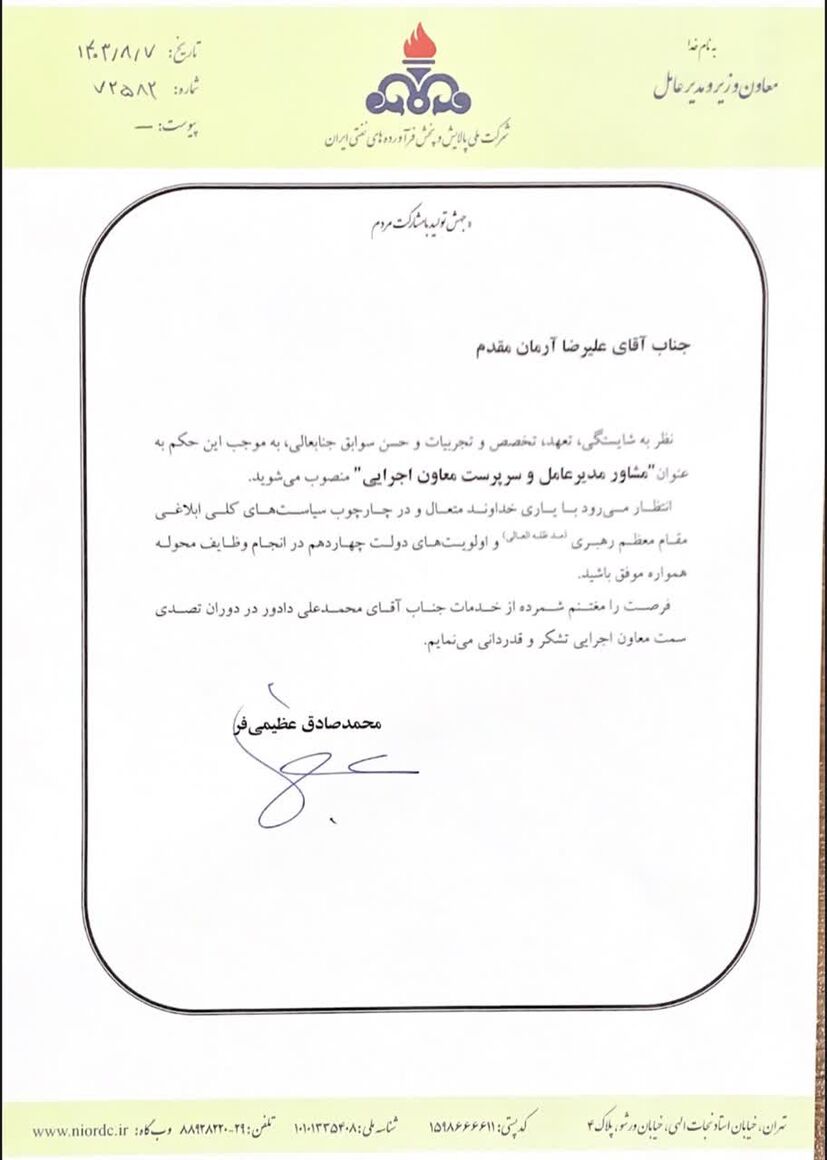 به نام خدا
معاون وزیر و مدیر عامل
شرکت ملی پالایش و پخش فرآورده های نفتی ایران
تاریخ: ۱۴۰۳/۸/۷
شماره: ۷۲۵۸۲
پیوست: —
«جهش تولید با مشارکت مردم
جناب آقای علیرضا آرمان مقدم
نظر به شایستگی، تعهد، تخصص و تجربیات و حسن سوابق جنابعالی، به موجب این حکم به
عنوان "مشاور مدیرعامل و سرپرست معاون اجرایی" منصوب می‌شوید.
انتظار می‌رود با یاری خداوند متعال و در چارچوب سیاست‌های کلی ابلاغی
مقام معظم رهبری (مد ظله العالی) و اولویت‌های دولت چهاردهم در انجام وظایف محوله
همواره موفق باشید.
فرصت را مغتنم شمرده از خدمات جناب آقای محمدعلی دادور در دوران تصدی
سمت معاون اجرایی تشکر و قدردانی می‌نمایم.
محمدصادق عظیمی‌فر
تهران، خیابان استاد نجات الهی، خیابان ورشو، پلاک ۴ کد پستی: ۱۵۹۸۶۶۶۶۱۱ شناسه ملی: ۱۰۱۰۱۳۳۵۴۰۸ تلفن: ۲۹-۸۸۹۲۸۲۲۰ وب گاه: www.niordc.ir